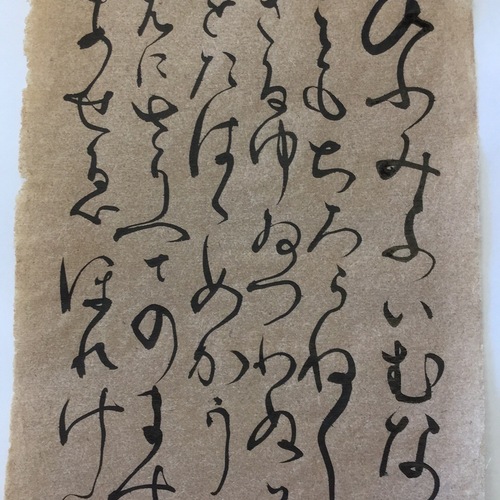 ひふみよいむな
ともちろらねし
きるゆゐつわぬ
をたはくめかう
えにさりへてのます
あせゑほれけ